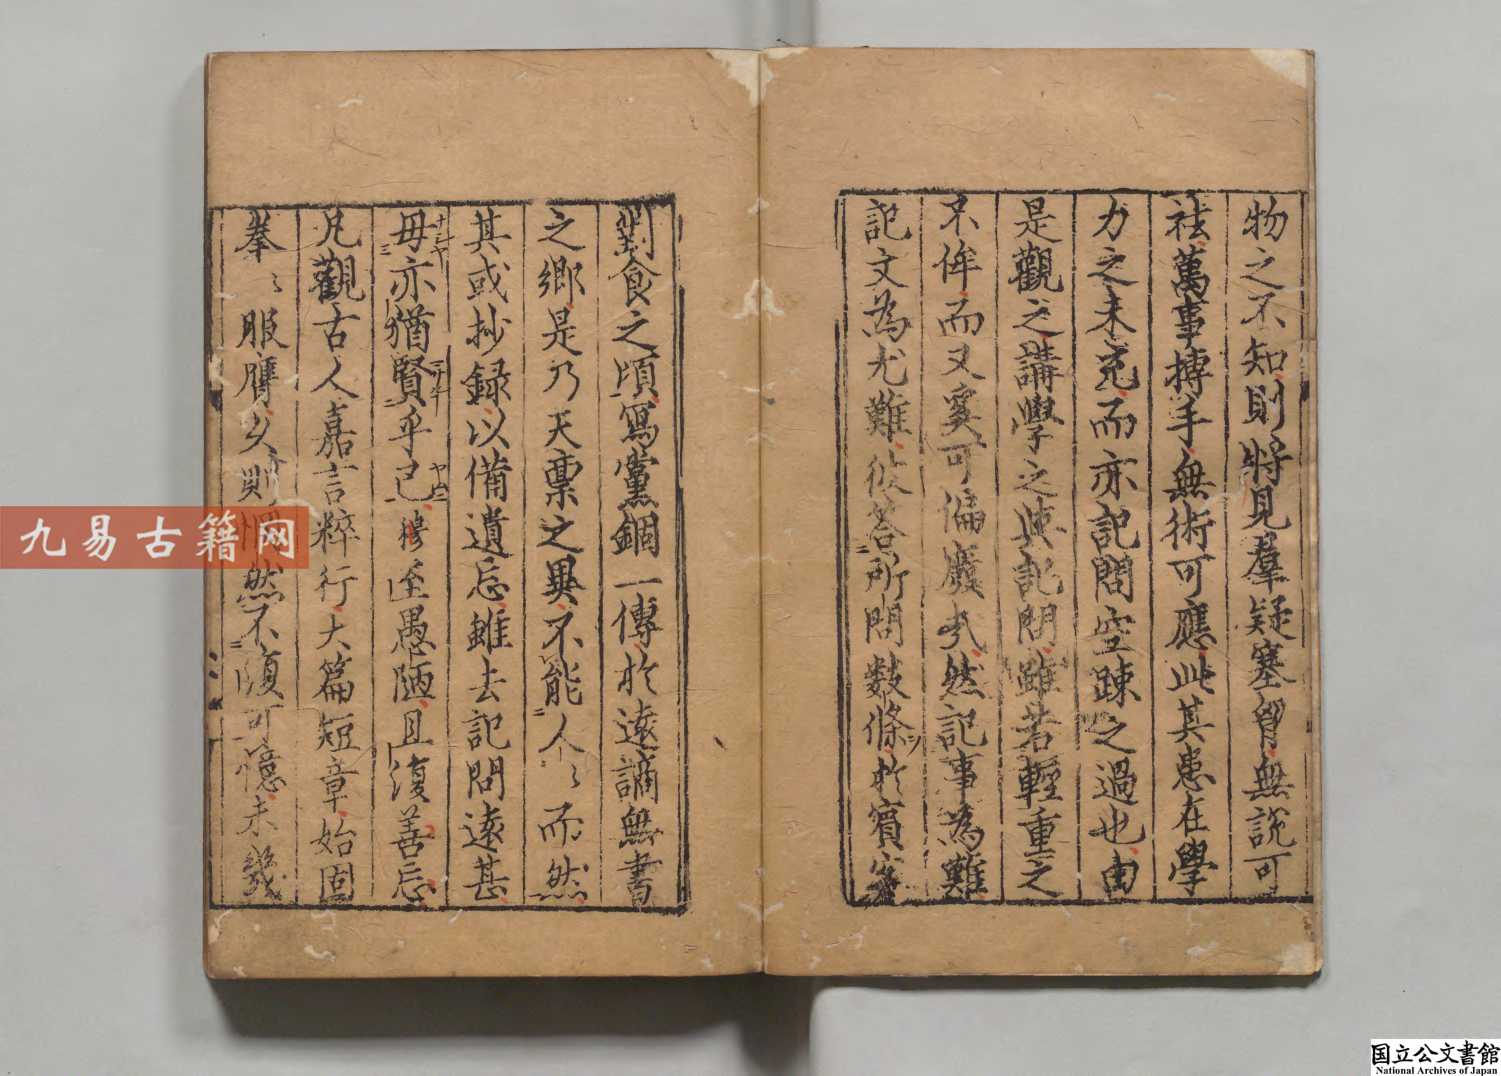 物之不知則將見羣疑塞胷無說可
祛萬事搏手無術可應此其患在學
力之未充而亦記問空踈之過也由
是觀之講學之與記問雖若輕重之
不侔而又奚可偏廢哉然記事為難
記文為尤難彼荅所問數條於賔客
對食之頃寫黨錮一傳於遠謫無書
之鄉是乃天禀之異不能人〻而然
其或抄録以備遺忘雖去記問遠甚
毋亦猶賢乎已 穆至愚陋且復善忘
凡觀古人嘉言粹行大篇短章始固
拳〻服膺久則惘然不復可憶未幾
九易古籍网
国立公文書館
National Archives of Japan